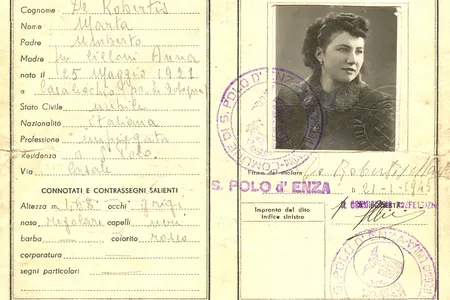 Cognome De Robertis
Nome Marta
Padre Umberto
Madre fu Zilloni Anna
nato il 25 Maggio 1921
a Casalecchio pr. di Bologna
Stato Civile nubile
Nazionalità italiana
Professione impiegata
Residenza S. Polo
Via Casale
CONNOTATI E CONTRASSEGNI SALIENTI
Altezza 1.68 occhi grigi
naso regolare capelli neri
barba colorito roseo
corporatura
segni particolari
COMUNE DI S. POLO D'ENZA
Firma del titolare De Robertis Marta
S. POLO d' ENZA
21-1-1945
Impronta del dito
indice sinistro
S. POLO D'ENZA